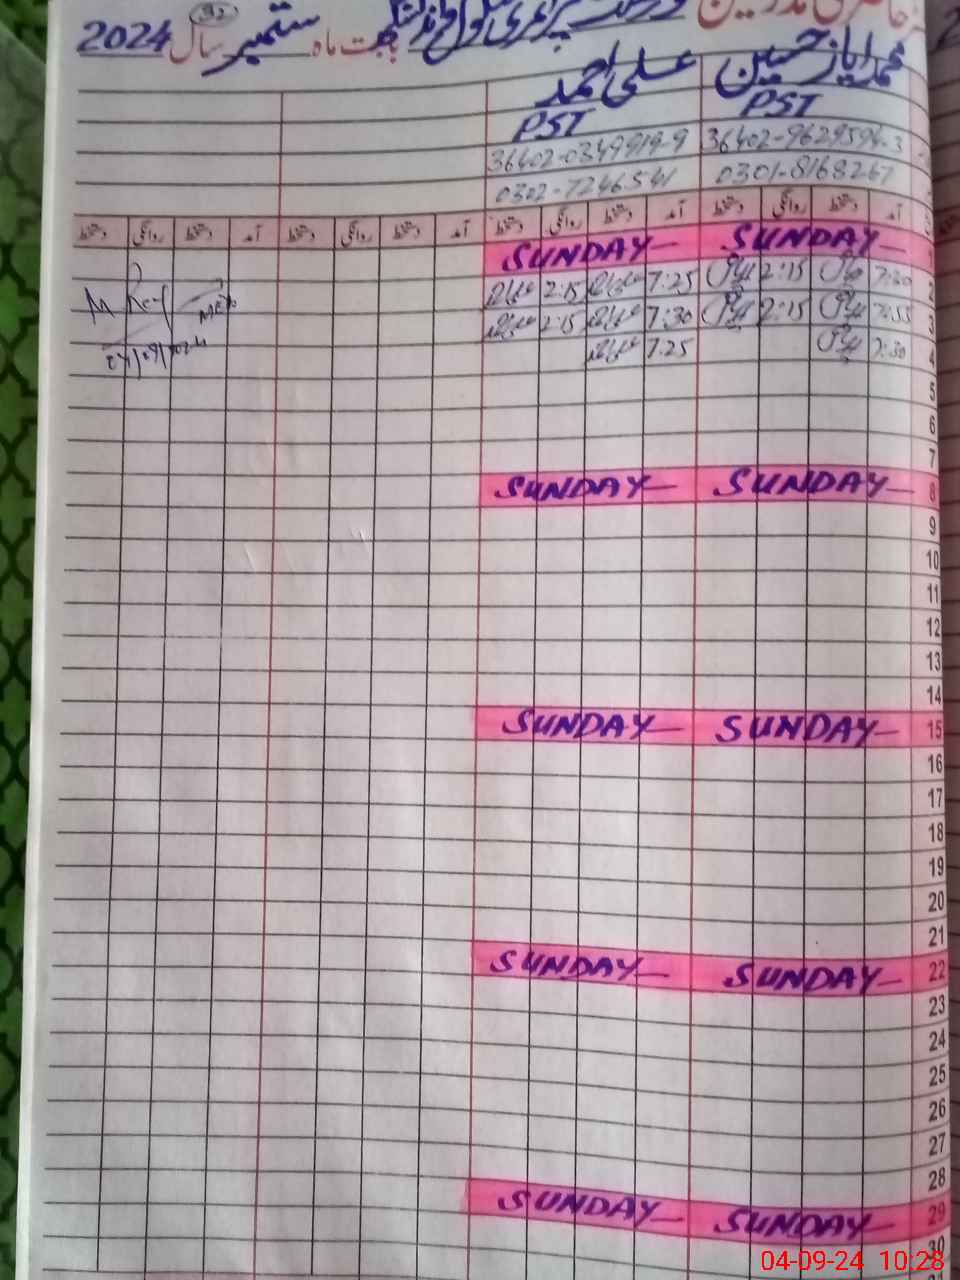 حاضری مدرسین پرائمری بابت ماه ستمبر سال 2024
محمد ایاز حسین علی احمد
PST PST
36402-9629594-3 36402-0349919-9
0301-8168267 0302-7246541
آمد دستخط روانگی دستخط آمد دستخط روانگی دستخط آمد دستخط روانگی دستخط آمد دستخط روانگی دستخط
1 SUNDAY SUNDAY
2 7:30 2:15 7:25 2:15
3 7:55 2:15 7:30 2:15
4 7:30 7:25
04/09/2024
5
6
7
8 SUNDAY SUNDAY
9
10
11
12
13
14
15 SUNDAY SUNDAY
16
17
18
19
20
21
22 SUNDAY SUNDAY
23
24
25
26
27
28
29 SUNDAY SUNDAY
30
04-09-24 10:28